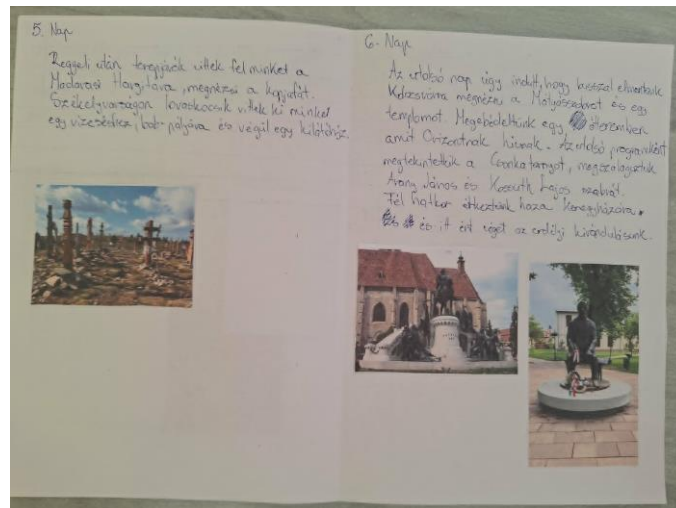 5. Nap
Reggeli után terepjárók vittek fel minket a
Madarasi Hargitára, megnézni a kopjafát.
Székelyvarságon lovaskocsik vittek ki minket
egy vízeséshez, bob-pályára és végül egy kilátóhoz.
6. Nap
Az utolsó nap úgy indult, hogy busszal elmentünk
Kolozsvárra megnézni a Mátyásszobrot és egy
templomot. Megebédeltünk egy étteremben
amit Orizontnak hívnak. Az utolsó programként
megtekintettük a Csonkatornyot, megszalagoztuk
Arany János és Kossuth Lajos szobrát.
Fél hatkor érkeztünk haza
és itt ért véget az erdélyi kirándulásunk.